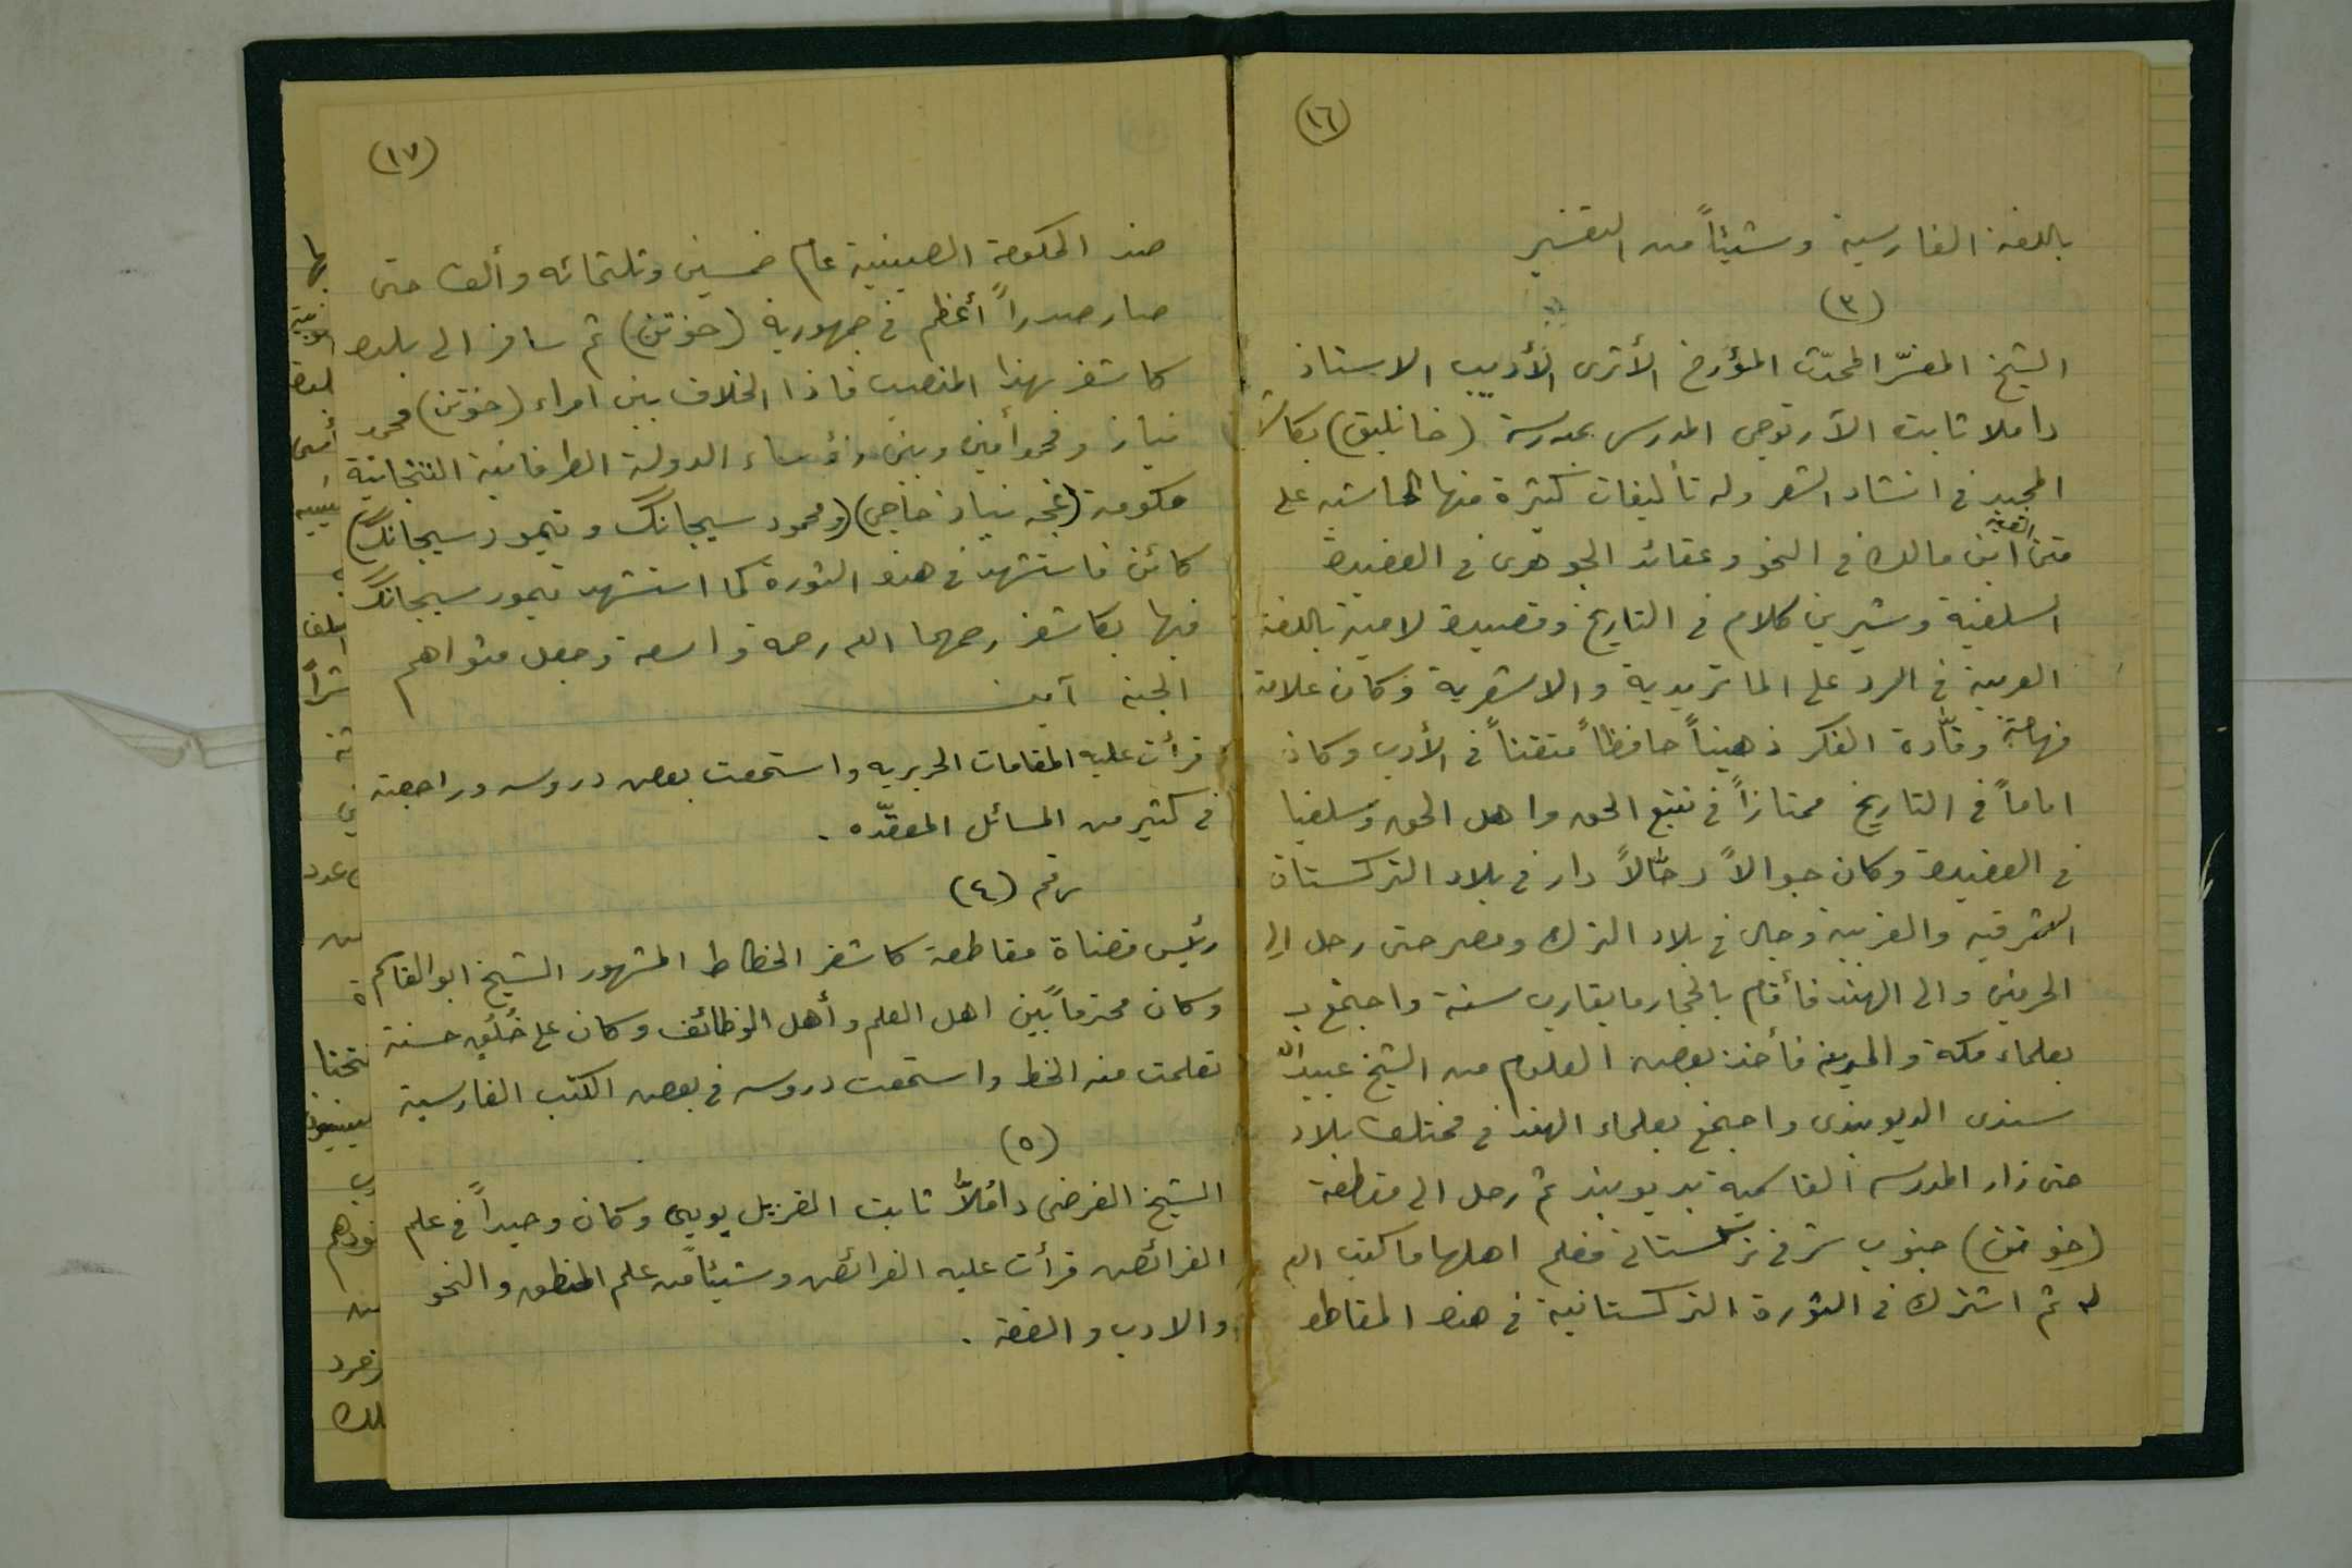 (١٦)
باللغة الفارسية وشيئاً من التفسير
(٣)
الشيخ المفسّر المحدّث المؤرخ الأثرى الأديب الاستاذ
داملا ثابت الآرتوجى المدرس بمدرسة (خانليق) بكاشـ
المجيد فى انشاد الشعر وله تأليفات كثيرة منها الحاشيه على
متن الفية ابن مالك فى النحو وعقائد الجوهرى فى العقيدة
السلفية وشيرين كلام فى التاريخ وقصيدة لامية باللغة
العربية فى الرد على الماتريدية والاشعرية وكان علامة
فهامة وقّادة الفكر ذهيناً حافظاً متقناً فى الأدب وكان
اماماً فى التاريخ ممتازاً فى تتبع الحق واهل الحق وسلفيا
فى العقيدة وكان جوالاً رحّالاً دار فى بلاد التركستان
الشرقيه والغربية وجال فى بلاد الترك ومصر حتى رحل الى
الحرمين والى الهند فأقام بالحجاز ما يقارب سنة واجتمع بـ
بعلماء مكة والمدينة فأخذ بعض العلوم من الشيخ عبيد الله
سندى الديوبندى واجتمع بعلماء الهند فى مختلف بلاد
حتى زار المدرسه القاسمية بديوبند ثم رحل الى مقطعة
(خوتن) جنوب شرقى تركستانى فعلم اهلها ما كتب الله
له ثم اشترك فى الثورة التركستانية فى هذه المقاطعة
(١٧)
ضد الحكومة الصينية عام خمسين وثلثمائه وألف حتى
صار صدراً أعظم فى جمهورية (خوتن) ثم سافر الى بلده
كاشغر بهذا المنصب فاذا الخلاف بين امراء (خوتن) محمد
نياز ومحمد أمين وبين رؤساء الدولة الطرفانية
حكومة (غجه نياز حاجى) (ومحمود سيجانگ وتيمور سيجانگ)
كائن فاستشهد فى هذه الثورة كما استشهد تيمور سيجانگ
فيها بكاشغر رحمهما الله رحمة واسعة وجعل مثواهم
الجنة آمين
قرأت عليه المقامات الحريريه واستمعت بعض دروسه وراجعته
فى كثير من المسائل المعقّده .
رقم (٤)
رئيس قضاة مقاطعة كاشغر الخطاط المشهور الشيخ ابو القاسم
وكان محترماً بين اهل العلم وأهل الوظائف وكان على خُلُق حسنة
تعلمت منه الخط واستمعت دروسه فى بعض الكتب الفارسية
(٥)
الشيخ الفرضى داملاّ ثابت القزيل بويى وكان وحيداً فى علم
الفرائض قرأت عليه الفرائض وشيئاً من علم المنطق والنحو
والادب والفقه .